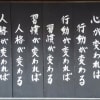 心が変われば
行動が変わる
行動が変われば
習慣が変わる
習慣が変われば
人格が変わる
人格が変われば